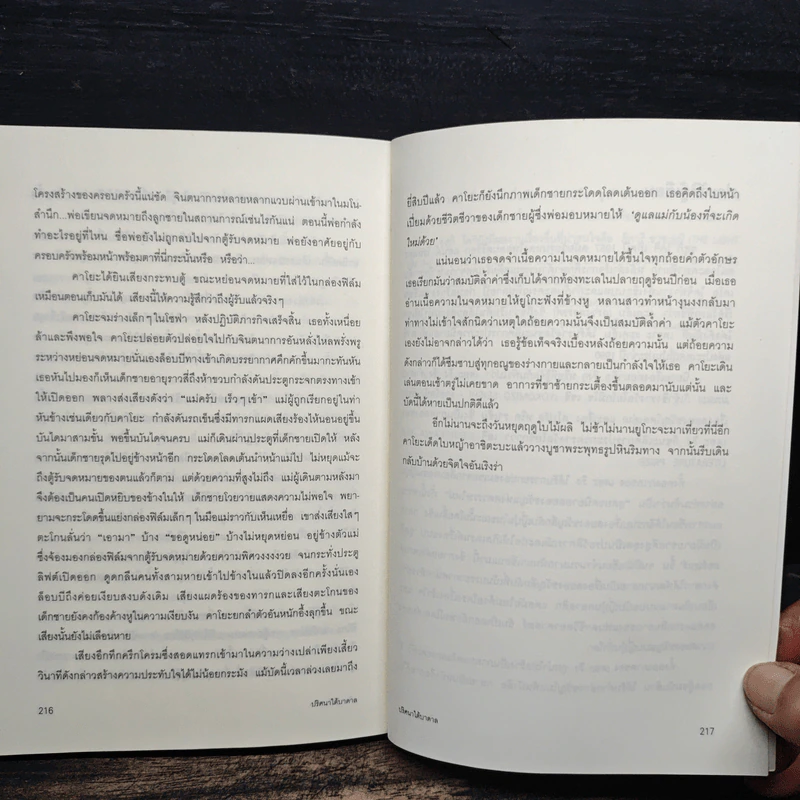 โครงสร้างของครอบครัวนี้แน่ชัด จินตนาการหลายหลากแวบผ่านเข้ามาในมโน-
สำนึก...พ่อเขียนจดหมายถึงลูกชายในสถานการณ์เช่นไรกันแน่ ตอนนี้พ่อกำลัง
ทำอะไรอยู่ที่ไหน ชื่อพ่อยังไม่ถูกลบไปจากตู้รับจดหมาย พ่อยังอาศัยอยู่กับ
ครอบครัวพร้อมหน้าพร้อมตาที่นี่กระนั้นหรือ หรือว่า...
คาโยะได้ยินเสียงกระทบตู้ ขณะหย่อนจดหมายที่ใส่ไว้ในกล่องฟิล์ม
เหมือนตอนเก็บมันได้ เสียงนี้ให้ความรู้สึกว่าถึงผู้รับแล้วจริงๆ
คาโยะจมร่างเล็กๆ ในโซฟา หลังปฏิบัติภารกิจเสร็จสิ้น เธอทั้งเหนื่อย
ล้าและพึงพอใจ คาโยะปล่อยตัวปล่อยใจไปกับจินตนาการอันหลั่งไหลพรั่งพรู
ระหว่างหย่อนจดหมายนั่นเองล็อบบี้ทางเข้าเกิดบรรยากาศคึกคักขึ้นมากะทันหัน
เธอหันไปมองก็เห็นเด็กชายอายุราวสี่ถึงห้าขวบกำลังดันประตูกระจกตรงทางเข้า
ให้เปิดออก พลางส่งเสียงดังว่า “แม่ครับ เร็วๆ เข้า” แม่ผู้ถูกเรียกอยู่ในท่า
หันข้างเช่นเดียวกับคาโยะ กำลังดันรถเข็นซึ่งมีทารกแผดเสียงร้องไห้นอนอยู่ขึ้น
บันไดมาสามขั้น พอขึ้นบันไดจนครบ แม่ก็เดินผ่านประตูที่เด็กชายเปิดให้ หลัง
จากนั้นเด็กชายรุดไปอยู่ข้างหน้าอีก กระโดดโลดเต้นนำหน้าแม่ไป ไม่หยุดแม้จะ
ถึงตู้รับจดหมายของตนแล้วก็ตาม แต่ด้วยความที่สูงไม่ถึง แม่ผู้เดินตามหลังมา
จึงต้องเป็นคนเปิดหยิบของข้างในให้ เด็กชายโวยวายแสดงความไม่พอใจ พยา-
ยามจะกระโดดขึ้นแย่งกล่องฟิล์มเล็กๆ ในมือแม่ราวกับเห็นเหยื่อ เขาส่งเสียงใสๆ
ตะโกนลั่นว่า “เอามา” บ้าง “ขอดูหน่อย” บ้างไม่หยุดหย่อน อยู่ข้างตัวแม่
ซึ่งจ้องมองกล่องฟิล์มจากตู้รับจดหมายด้วยความพิศวงงงงวย จนกระทั่งประตู
ลิฟต์เปิดออก ดูดกลืนคนทั้งสามหายเข้าไปข้างในแล้วปิดลงอีกครั้งนั่นเอง
ล็อบบี้ถึงค่อยเงียบสงบดังเดิม เสียงแผดร้องของทารกและเสียงตะโกนของ
เด็กชายยังคงก้องค้างหูในความเงียบงัน คาโยะยกลำตัวอันหนักอึ้งลุกขึ้น ขณะ
เสียงนั้นยังไม่เลือนหาย
เสียงอึกทึกครึกโครมซึ่งสอดแทรกเข้ามาในความว่างเปล่าเพียงเสี้ยว
วินาทีดังกล่าวสร้างความประทับใจได้ไม่น้อยกระมัง แม้บัดนี้เวลาล่วงเลยมาถึง
216
ปริศนาใต้บาดาล
ยี่สิบปีแล้ว คาโยะก็ยังนึกภาพเด็กชายกระโดดโลดเต้นออก เธอคิดถึงใบหน้า
เปี่ยมด้วยชีวิตชีวาของเด็กชายผู้ซึ่งพ่อมอบหมายให้ ‘ดูแลแม่กับน้องที่จะเกิด
ใหม่ด้วย’
แน่นอนว่าเธอจดจำเนื้อความในจดหมายได้ขึ้นใจทุกถ้อยคำตัวอักษร
เธอเรียกมันว่าสมบัติล้ำค่าซึ่งเก็บได้จากท้องทะเลในปลายฤดูร้อนปีก่อน เมื่อเธอ
อ่านเนื้อความในจดหมายให้ยูโกะฟังที่ข้างหู หลานสาวทำหน้างุนงงกลับมา
ท่าทางไม่เข้าใจสักนิดว่าเหตุใดถ้อยความนั้นจึงเป็นสมบัติล้ำค่า แม้ตัวคาโยะ
เองยังไม่อาจกล่าวได้ว่า เธอรู้ข้อเท็จจริงเบื้องหลังถ้อยความนั้น แต่ถ้อยความ
ดังกล่าวก็ได้ซึมซาบสู่ทุกอณูของร่างกายและกลายเป็นกำลังใจให้เธอ คาโยะเดิน
เล่นตอนเช้าตรู่ไม่เคยขาด อาการที่ขาซ้ายกระเตื้องขึ้นตลอดมานับแต่นั้น และ
บัดนี้ได้หายเป็นปกติดีแล้ว
อีกไม่นานจะถึงวันหยุดฤดูใบไม้ผลิ ไม่ช้าไม่นานยูโกะจะมาเที่ยวที่นี่อีก
คาโยะเด็ดใบหญ้าอาชิตะบะแล้ววางบูชาพระพุทธรูปหินริมทาง จากนั้นรีบเดิน
กลับบ้านด้วยจิตใจอันเริงร่า
ปริศนาใต้บาดาล
217